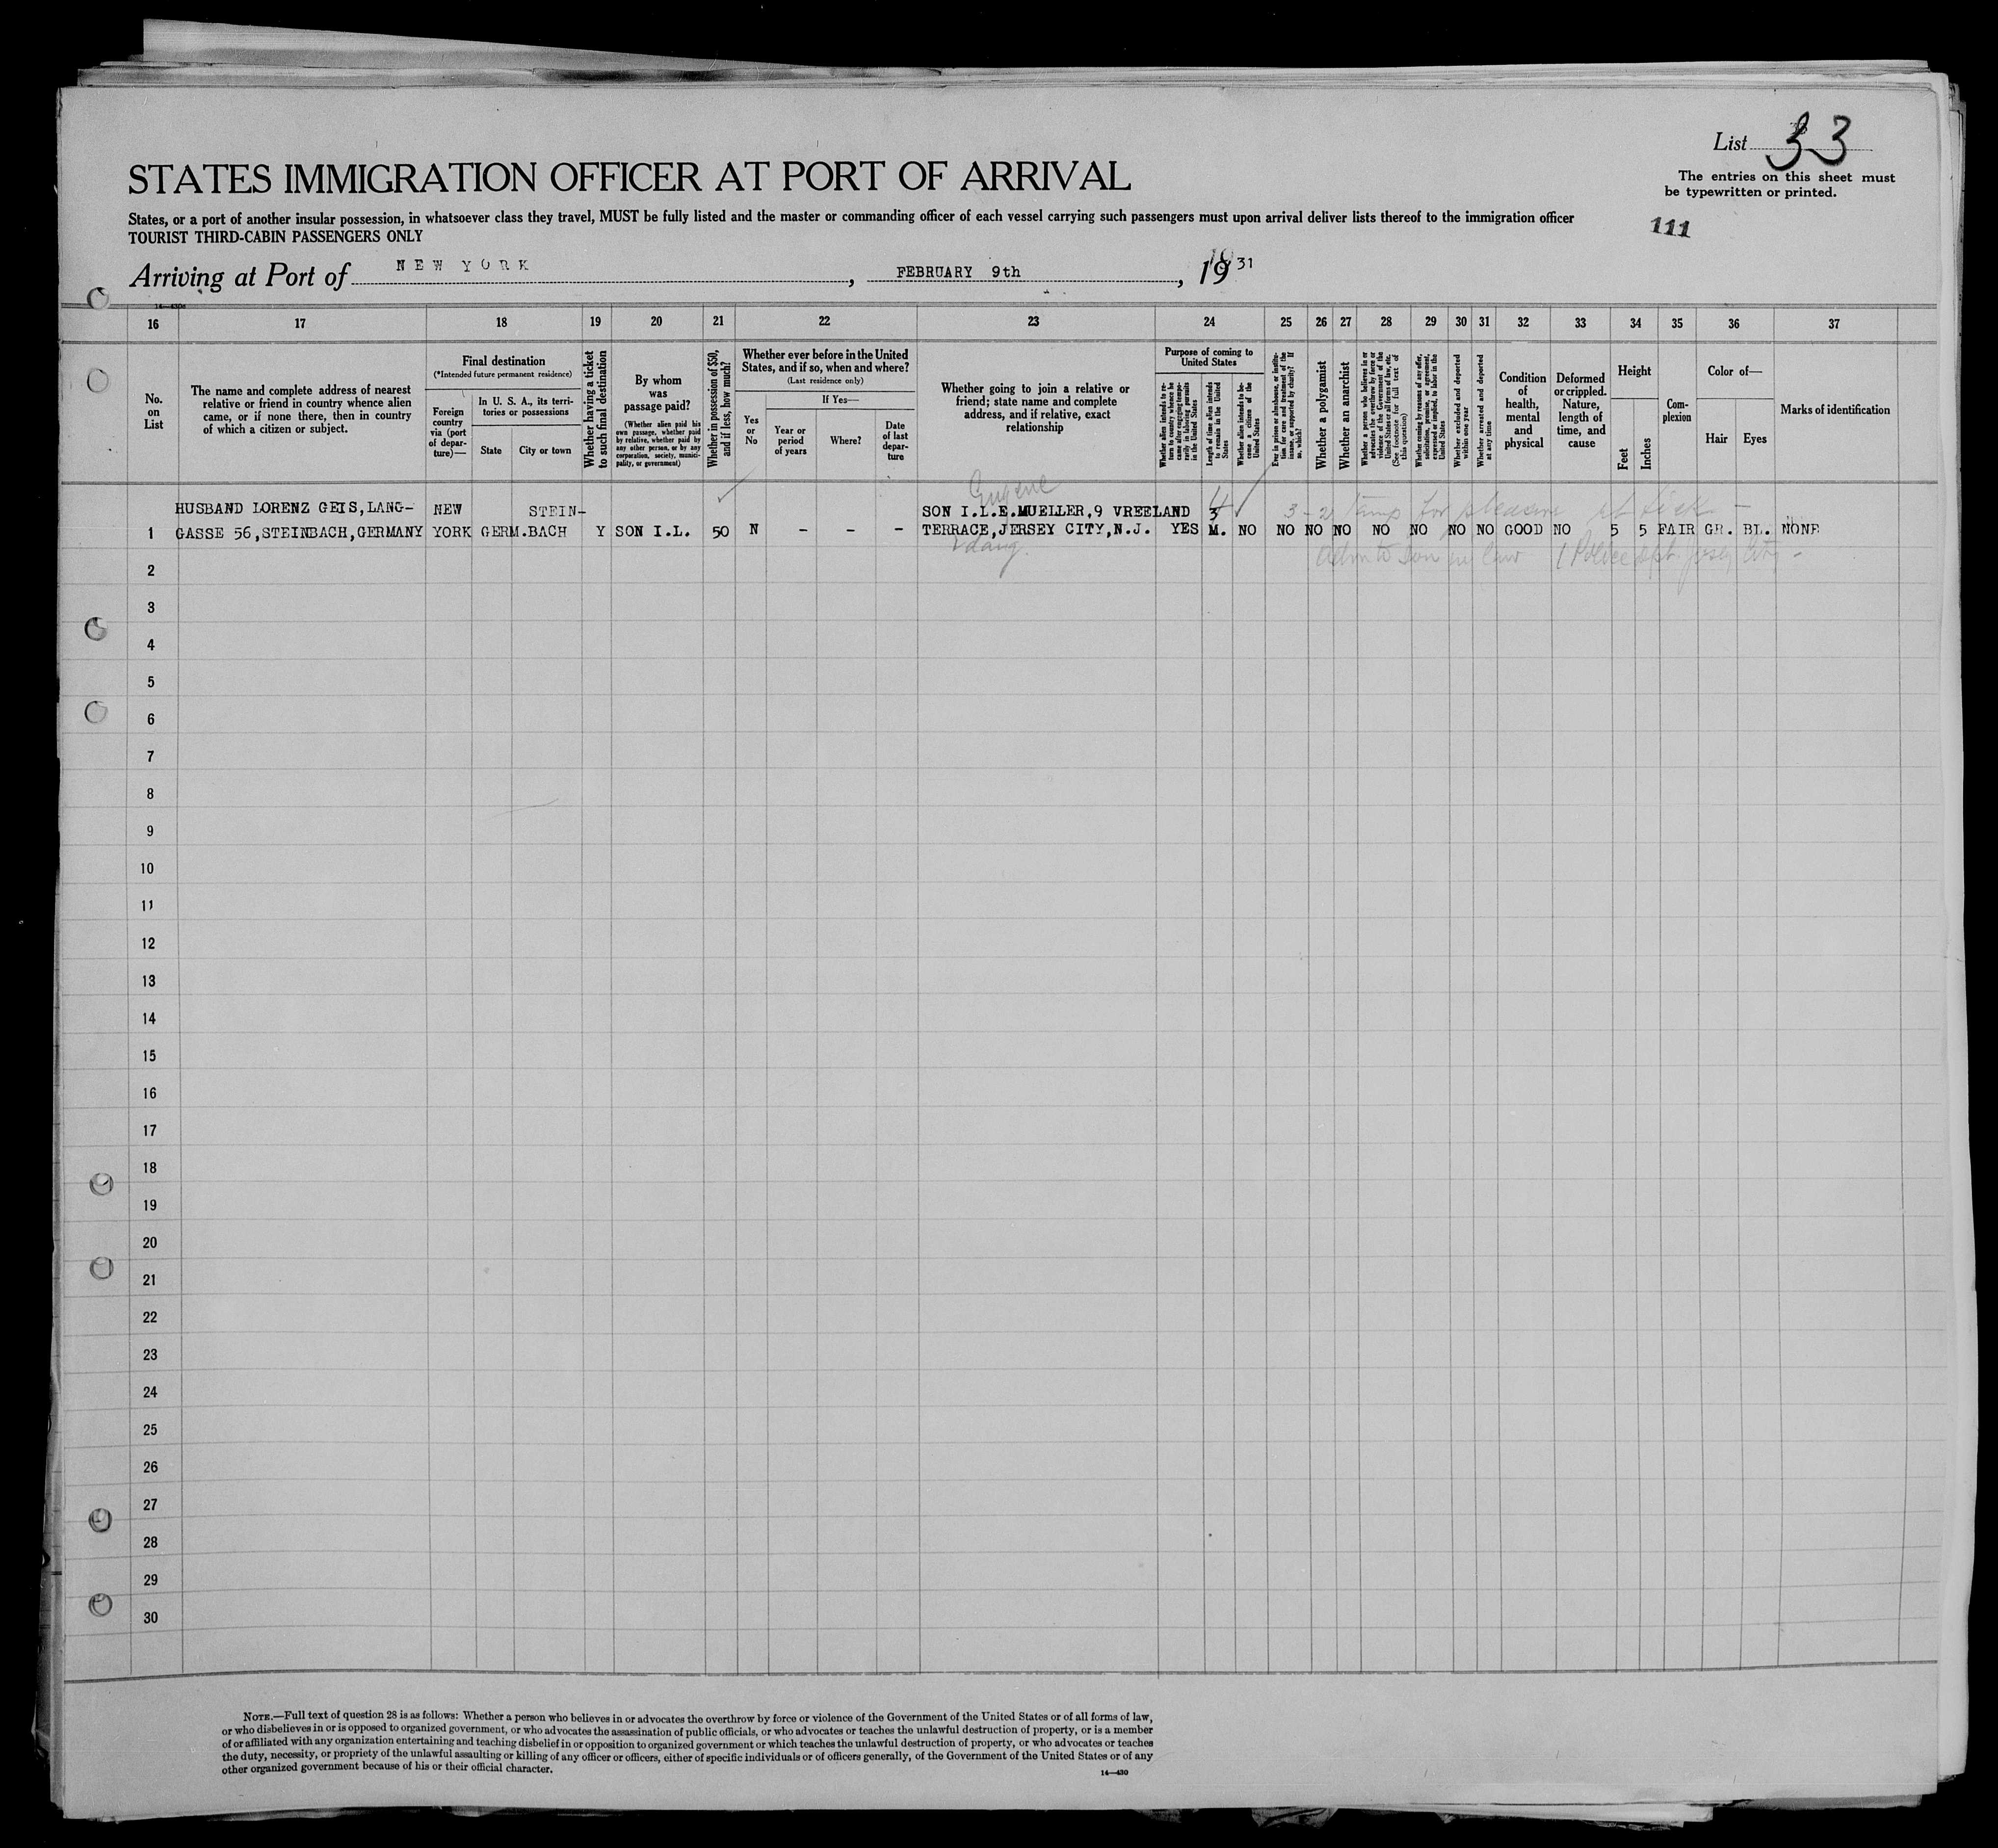 List 33
STATES IMMIGRATION OFFICER AT PORT OF ARRIVAL
The entries on this sheet must
be typewritten or printed.
States, or a port of another insular possession, in whatsoever class they travel, MUST be fully listed and the master or commanding officer of each vessel carrying such passengers must upon arrival deliver lists thereof to the immigration officer
TOURIST THIRD-CABIN PASSENGERS ONLY
111
Arriving at Port of NEW YORK, FEBRUARY 9th, 1931
14—430
16 17 18 19 20 21 22 23 24 25 26 27 28 29 30 31 32 33 34 35 36 37
No.
on
List
The name and complete address of nearest
relative or friend in country whence alien
came, or if none there, then in country
of which a citizen or subject.
Final destination
(*Intended future permanent residence)
Foreign
country
via (port
of depar-
ture)—
In U. S. A., its terri-
tories or possessions
State City or town
Whether having a ticket
to such final destination
By whom
was
passage paid?
(Whether alien paid his
own passage, whether paid
by relative, whether paid by
any other person, or by any
corporation, society, munici-
pality, or government)
Whether in possession of $50,
and if less, how much?
Whether ever before in the United
States, and if so, when and where?
(Last residence only)
Yes
or
No
If Yes—
Year or
period
of years
Where?
Date
of last
depar-
ture
Whether going to join a relative or
friend; state name and complete
address, and if relative, exact
relationship
Purpose of coming to
United States
Whether alien intends to re-
turn to country whence he
came after engaging tempo-
rarily in laboring pursuits
in the United States
Length of time alien intends
to remain in the United
States
Whether alien intends to be-
come a citizen of the
United States
Ever in prison or almshouse, or institu-
tion for care and treatment of the
insane, or supported by charity? If
so, which?
Whether a polygamist
Whether an anarchist
Whether a person who believes in or
advocates the overthrow by force or
violence of the Government of the
United States or all forms of law, etc.
(See footnote for full text of
this question)
Whether coming by reasons of any offer,
solicitation, promise, or agreement,
expressed or implied, to labor in the
United States
Whether excluded and deported
within one year
Whether arrested and deported
at any time
Condition
of
health,
mental
and
physical
Deformed
or crippled.
Nature,
length of
time, and
cause
Height
Feet
Inches
Com-
plexion
Color of—
Hair Eyes
Marks of identification
Eugene
HUSBAND LORENZ GEIS,LANG- NEW STEIN- SON I.L.E.MUELLER,9 VREELAND 3 4 3-2 temp for pleasure
1 GASSE 56,STEINBACH,GERMANY YORK GERM.BACH Y SON I.L. 50 N - - - TERRACE,JERSEY CITY,N.J. YES M. NO NO NO NO NO NO NO NO GOOD NO 5 5 FAIR GR. BL. NONE
Adm to Son in law (Police dept. City -
2
3
4
5
6
7
8
9
10
11
12
13
14
15
16
17
18
19
20
21
22
23
24
25
26
27
28
29
30
NOTE.—Full text of question 28 is as follows: Whether a person who believes in or advocates the overthrow by force or violence of the Government of the United States or of all forms of law,
or who disbelieves in or is opposed to organized government, or who advocates the assassination of public officials, or who advocates or teaches the unlawful destruction of property, or is a member
of or affiliated with any organization entertaining and teaching disbelief in or opposition to organized government or which teaches the unlawful destruction of property, or who advocates or teaches
the duty, necessity, or propriety of the unlawful assaulting or killing of any officer or officers, either of specific individuals or of officers generally, of the Government of the United States or of any
other organized government because of his or their official character.
14—430